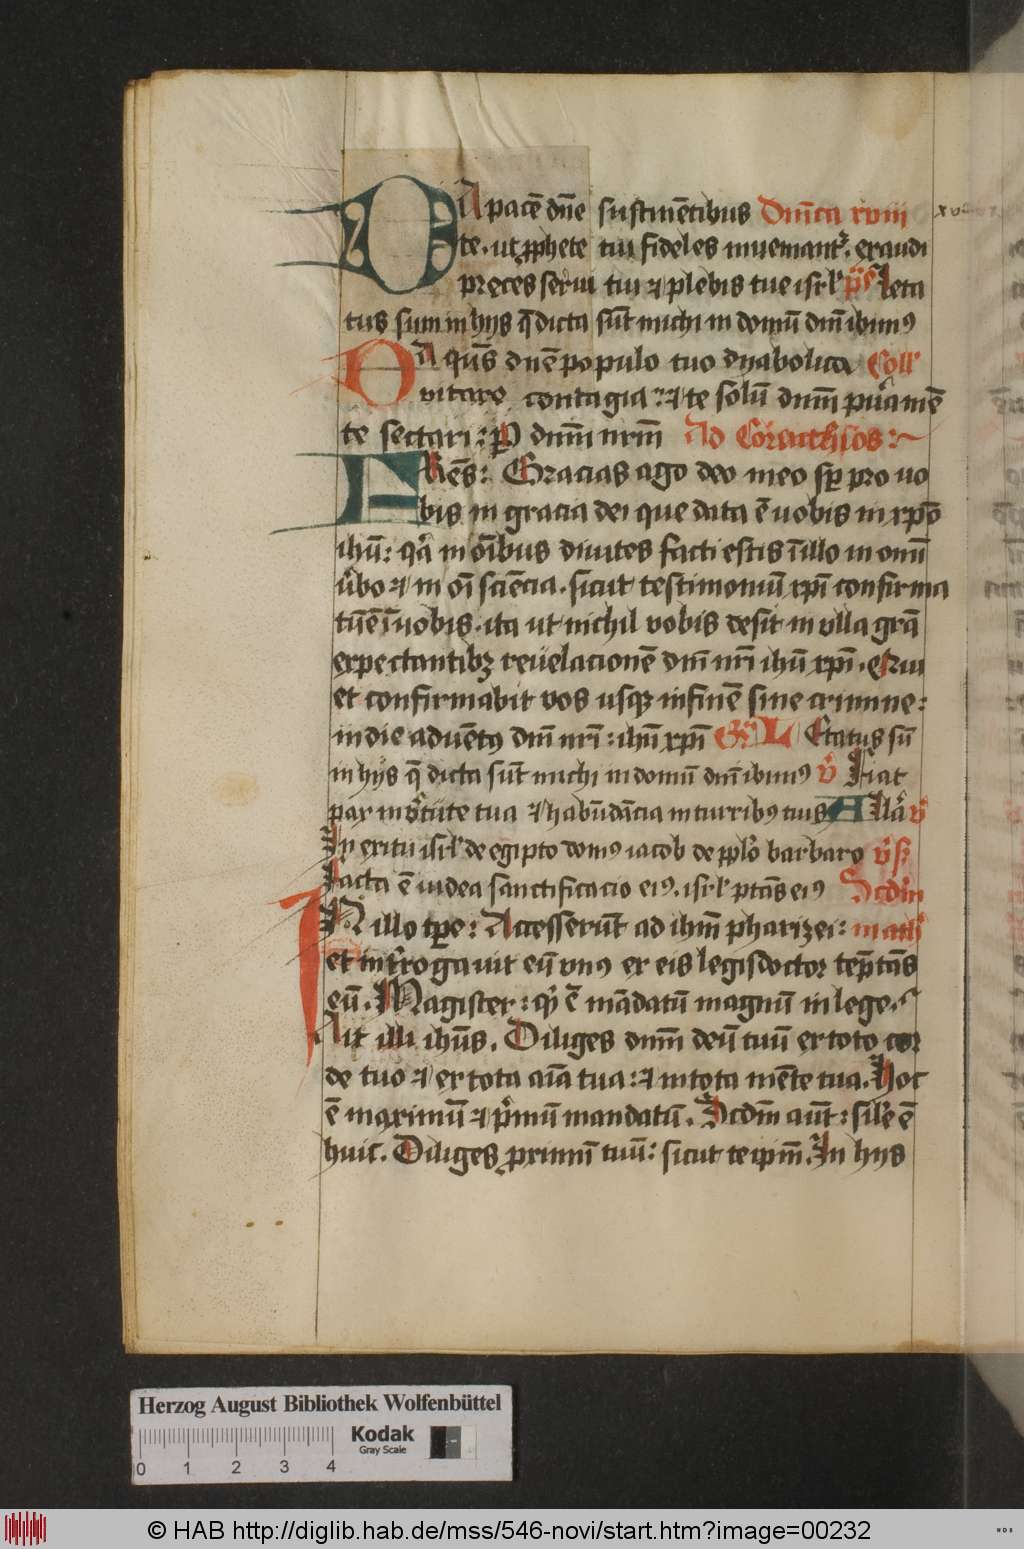 DA pacē dn̄e sustinētibus Dnīca xviii
te. ut ꝓphete tui fideles inueniant᷑. exaudi
preces serui tui ⁊ plebis tue isrl̓ p̄s̄ Leta
tus sum in hijs q̄ dicta sūt michi in domū dnī ibimꝰ
DA qūs dn̄e populo tuo dyabolica Coll̓
vitare contagia: ⁊ te solū dnm̄ pura mē
te sectari: ꝑ dnm̄ nrm̄ Ad Corinthios:
FRēs: Gracias ago deo meo sꝑ pro uo
bis in gracia dei que data ē uobis in xp̄o
ihū: qa in oībus diuites facti estis ī illo in omī
ūbo ⁊ in oī sciēcia. sicut testimoniū xp̄i confirma
tū ē ī uobis. ita ut nichil vobis desit in ulla gr̄a
expectantibꝫ reuelacionē dnī nrī ihū xp̄i. Qui
et confirmabit vos usqꝫ in finē sine crimine:
in die aduētꝰ dnī nrī: ihū xp̄i Gr̄l Letatus sū
in hijs q̄ dicta sūt michi in domū dnī ibimꝰ v̄ Fiat
pax in v̄tute tua ⁊ habūdācia in turribꝰ tuis Alla v̄
In exitu isrl̓ de egipto domꝰ iacob de ppl̓o barbaro v̄s
Facta ē iudea sanctificacio eiꝰ. isrl̓ ptās eiꝰ Scdm̄
IN illo tꝑe: Accesserūt ad ihm̄ pharizei: math̓
et interrogauit eū vnꝰ ex eis legisdoctor tēptās
eū. Magister: qd̓ ē mādatū magnū in lege.
Ait illi ihūs. Diliges dnm̄ deū tuū ex toto cor
de tuo ⁊ ex tota aīa tua: ⁊ in tota mēte tua. Hoc
ē maximū ⁊ pͥmū mandatū. Scdm̄ aūt: sil̓e ē
huic. Diliges proximū tuū: sicut te ipm̄. In hijs
Herzog August Bibliothek Wolfenbüttel
Kodak
Gray Scale
0 1 2 3 4
© HAB http://diglib.hab.de/mss/546-novi/start.htm?image=00232